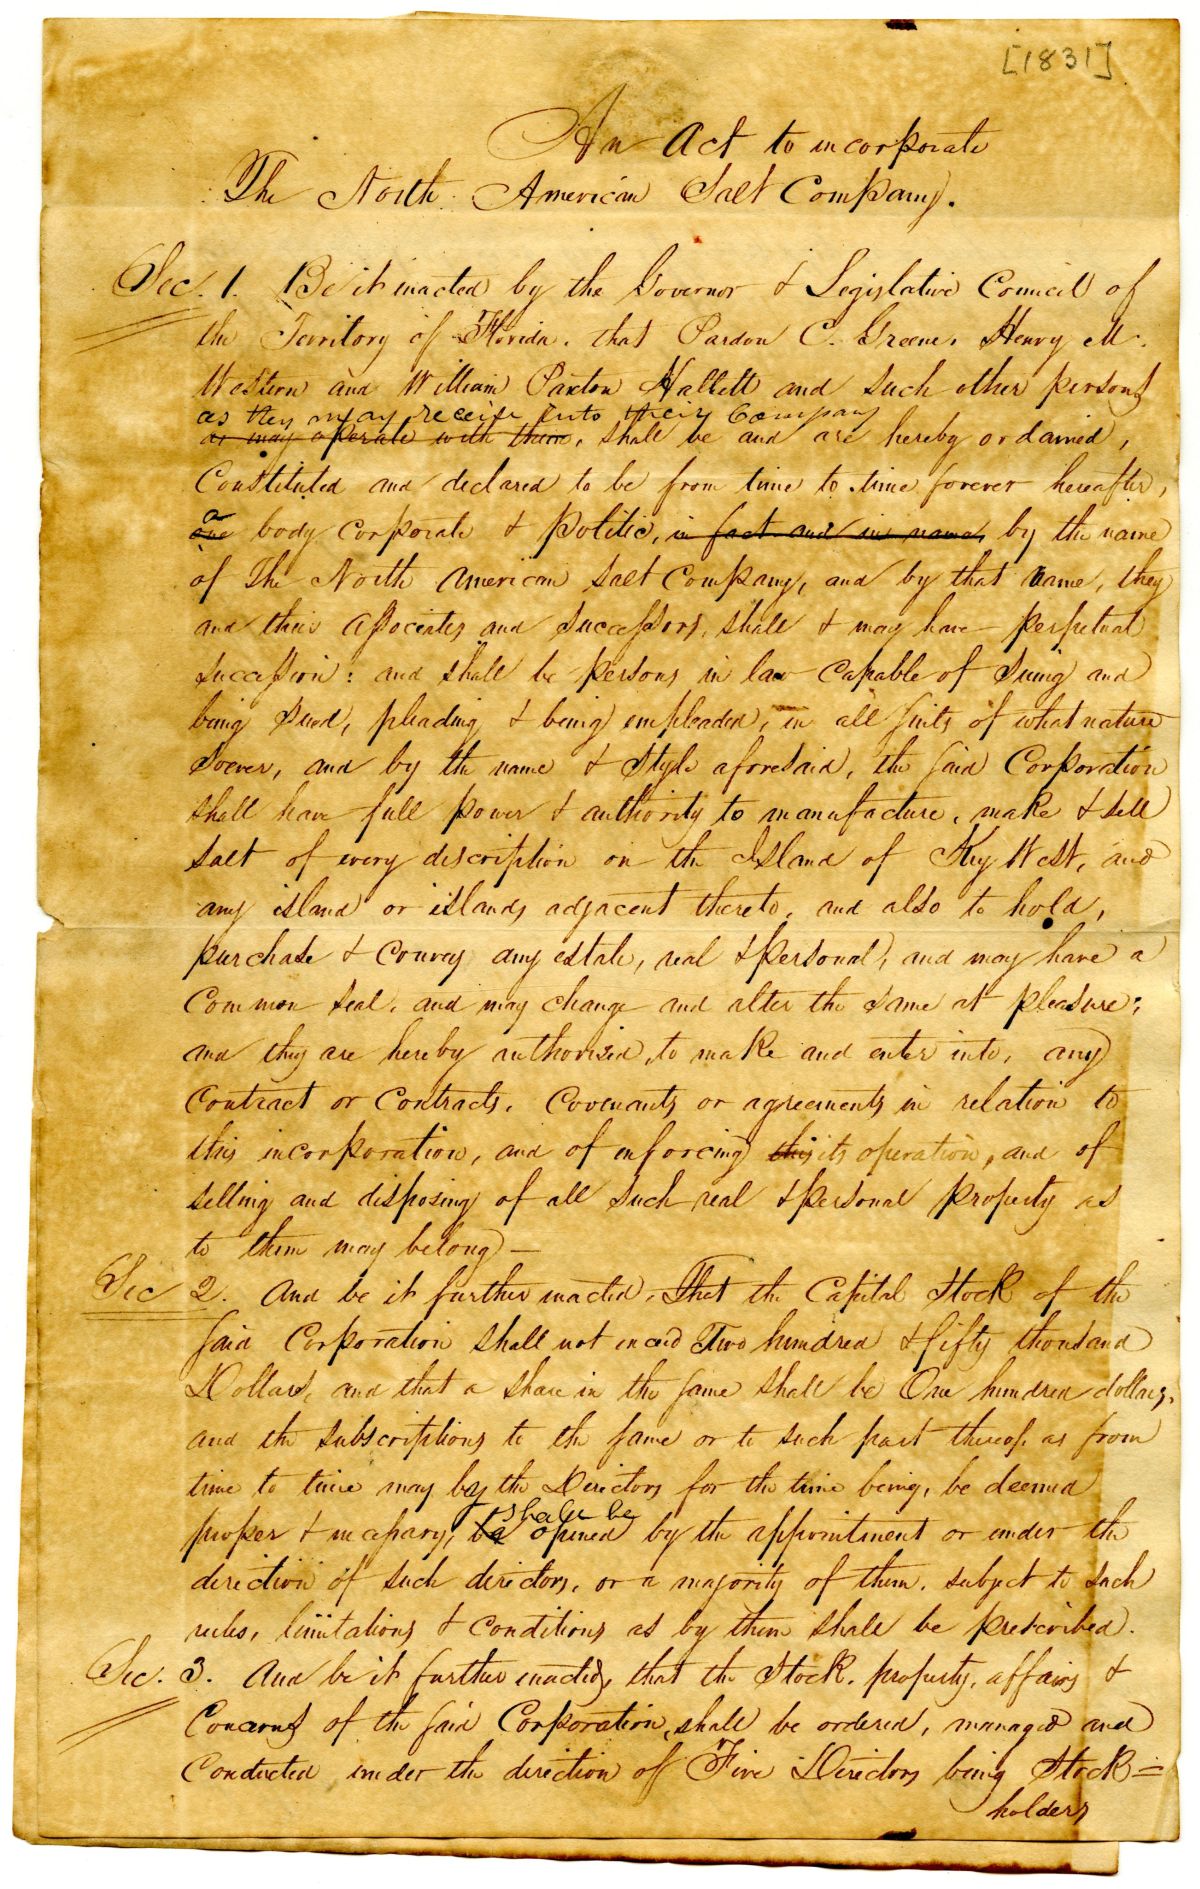 [1831]
An Act to incorporate
The North American Salt Company.
Sec. 1. Be it enacted by the Governor & Legislative Council of
the Territory of Florida. that Pardon C. Greene, Henry M.
Western and William Paxton Hallett and such other persons
as they may receive into their Company
as may operate with them, shall be and are hereby ordained,
Constituted and declared to be from time to time forever hereafter,
a
one body corporate & politic, in fact and in name, by the name
of The North American Salt Company, and by that name, they
and their associates and successors, shall & may have perpetual
succession: and shall be persons in law capable of suing and
being sued, pleading & being empleaded, in all suits of what nature
soever, and by the name & style aforesaid, the said Corporation
shall have full power & authority to manufacture, make & sell
salt of every description on the Island of Key West, and
any island or islands adjacent thereto, and also to hold,
purchase & convey any estate, real & personal, and may have a
Common seal, and may change and alter the same at pleasure;
and they are hereby authorised, to make and enter into, any
Contract or Contracts, Covenants or agreements in relation to
this incorporation, and of enforcing this its operation, and of
selling and disposing of all such real & personal property as
to them may belong —
Sec 2. And be it further enacted, That the Capital Stock of the
said Corporation shall not exceed Two hundred & fifty thousand
Dollars, and that a share in the same shall be One hundred dollars,
and the subscriptions to the same or to such part thereof, as from
time to time may by the Directors for the time being, be deemed
shall be
proper & necessary, be opened by the appointment or under the
direction of such directors, or a majority of them, subject to such
rules, limitations & conditions as by them shall be prescribed.
Sec. 3. And be it further enacted, that the Stock, property, affairs &
Concerns of the said Corporation, shall be ordered, managed and
Conducted under the direction of Five Directors being Stock=
holders